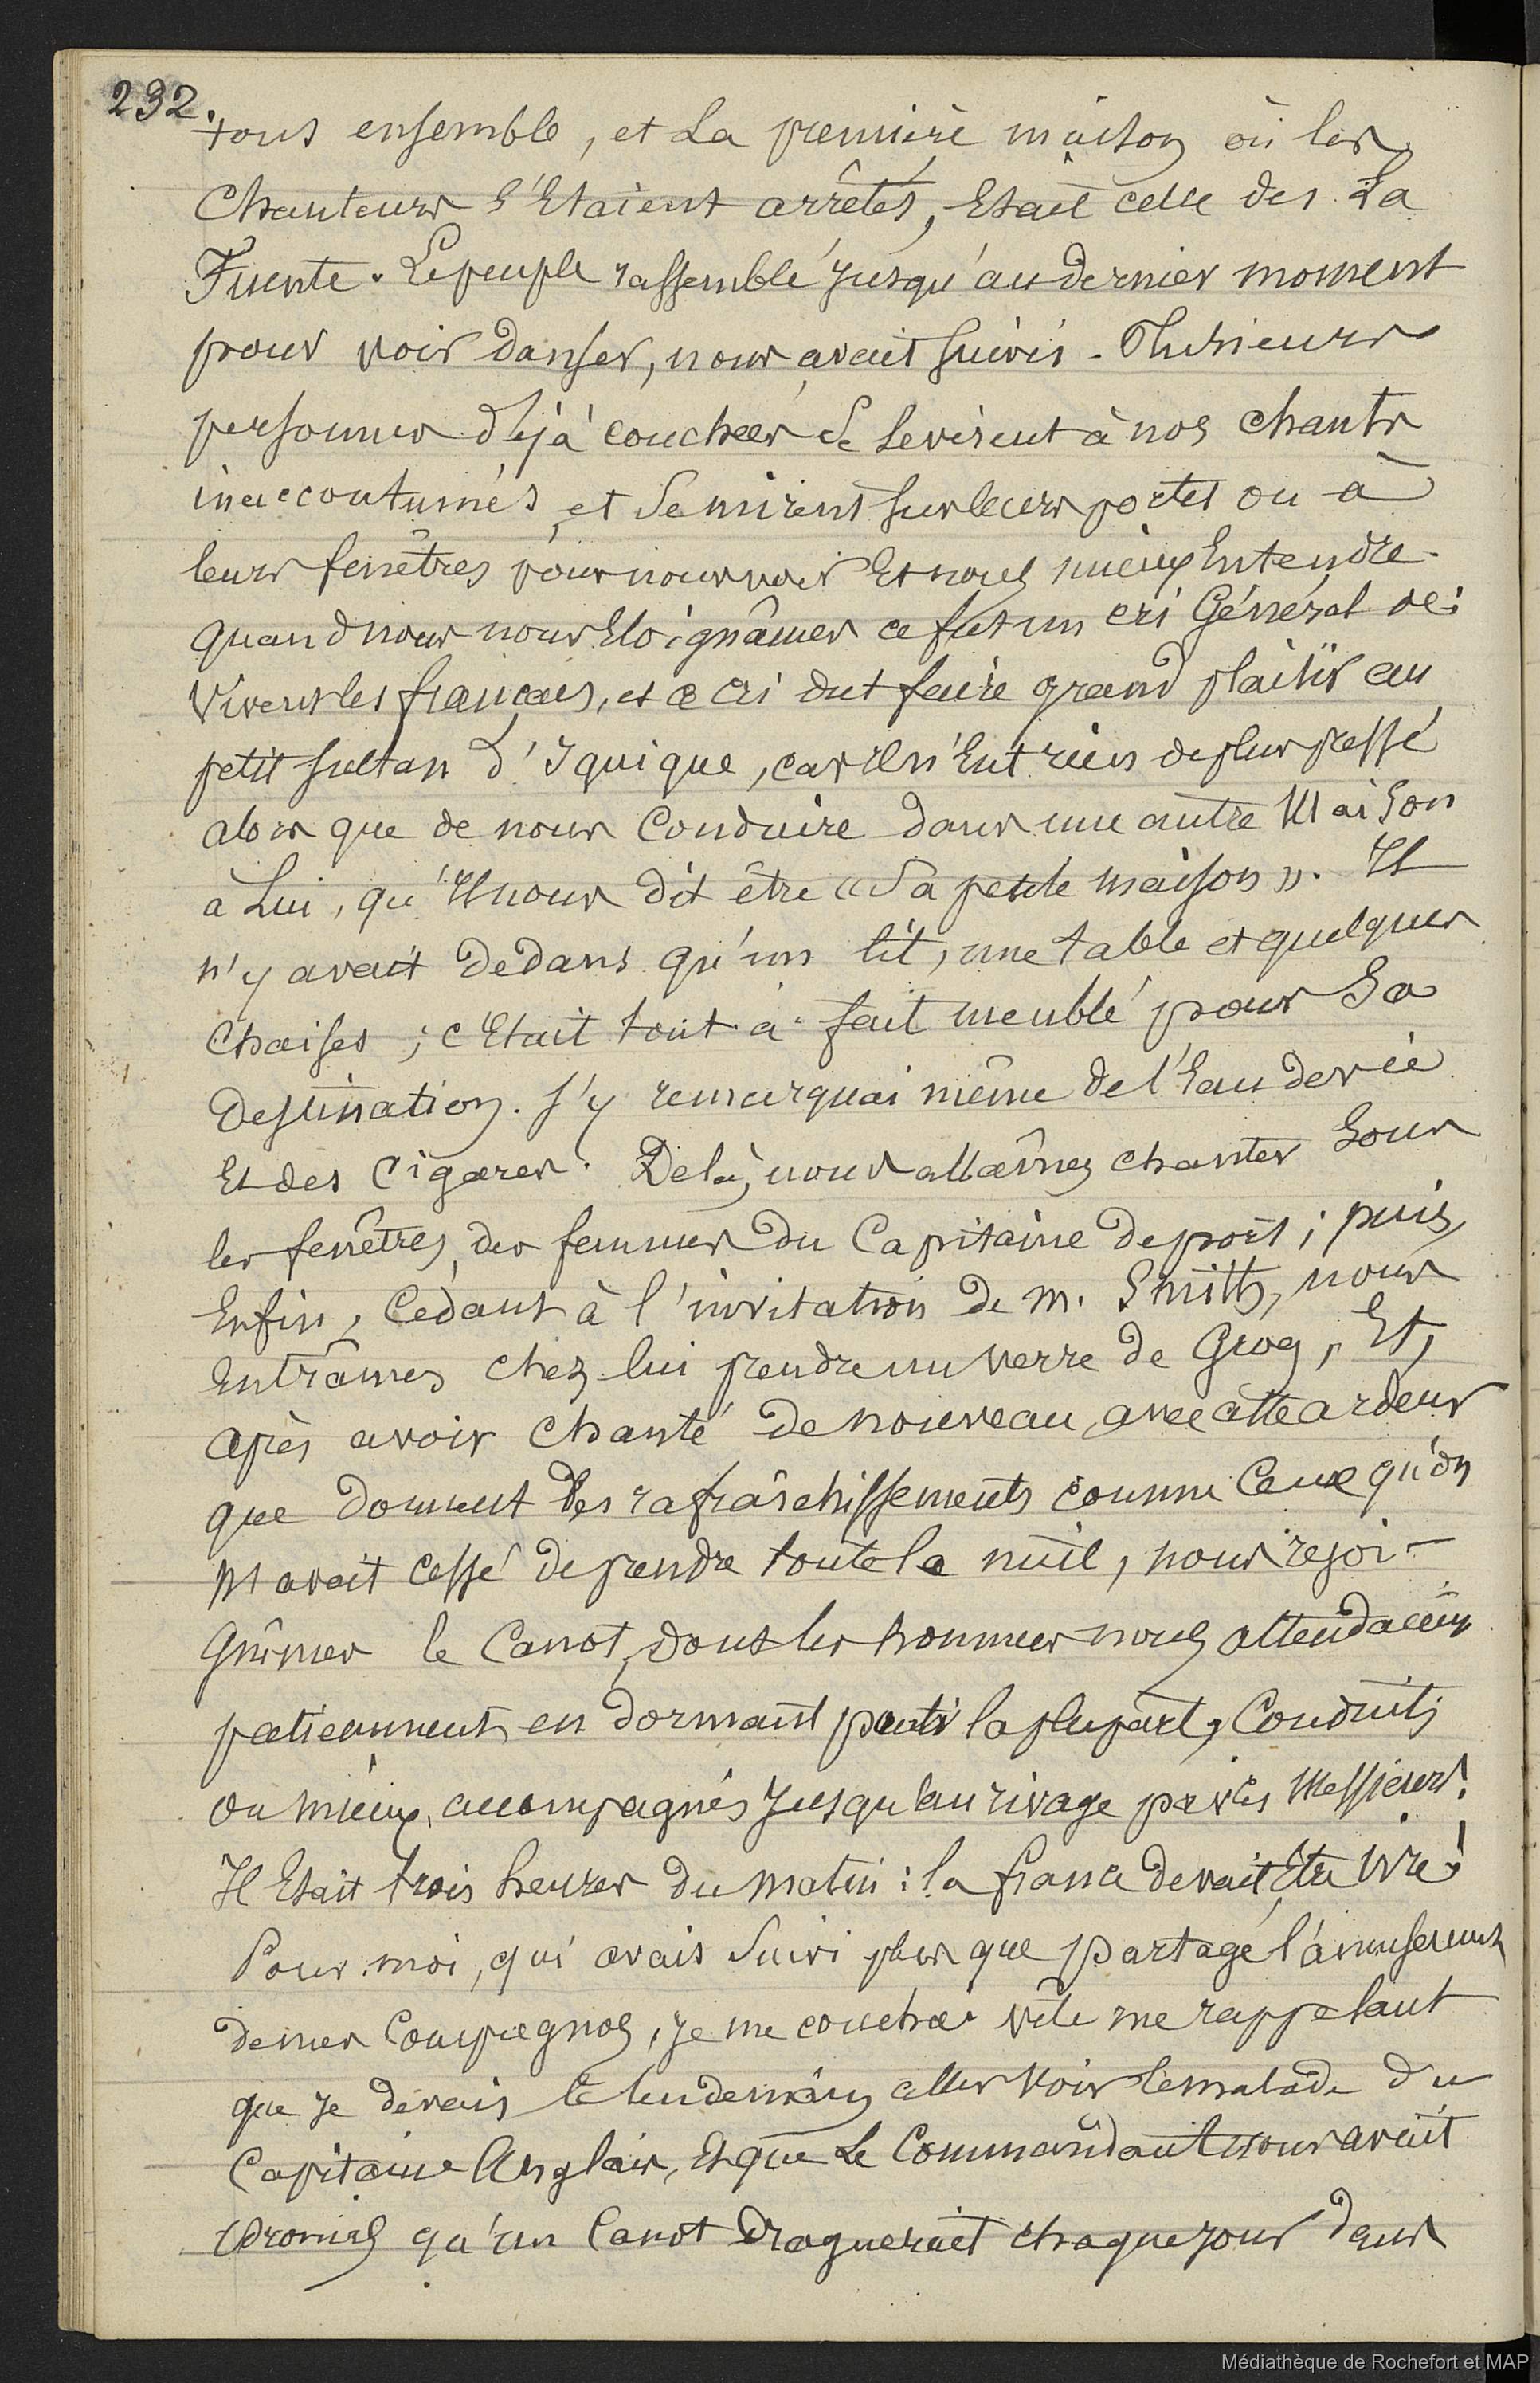 232.
tous ensemble, et La première maison où les
Chanteurs s'Etaient arrêtés, Etait celle des La
Fuente. Le peuple rassemblé jusqu'au dernier moment
pour voir danser, nous avait suivis. Plusieurs
personnes déjà couchées se levèrent à nos chants
inaccoutumés et se mirent sur leurs portes ou à
leurs fenêtres pour nous voir Et nous mieux Entendre.
quand nous nous Eloignâmes ce fut un cri Général de:
Vivent les français, et ce cri dut faire grand plaisir au
petit sultan d'Iquique, car Il n'Eut rien de plus pressé
alors que de nous Conduire dans une autre Maison
à Lui, qu'Il nous dit être « Sa petite maison ». Il
n'y avait dedans qu'un lit, une table et quelques
Chaises ; c'Etait tout-à-fait meublé pour Sa
Destination. J'y remarquai même de l'Eau de vie
Et des Cigares. De là, nous allâmes chanter Sous
les fenêtres des femmes du Capitaine de port ; puis,
Enfin, Cédant à l'invitation de m. Smith, nous
Entrâmes chez lui prendre un verre de Grog, Et,
après avoir chanté de nouveau avec cette ardeur
que donnent des rafraîchissements comme Ceux qu'on
n'avait cessé de prendre toute la nuit, nous rejoi-
gnîmes le Canot, dont les hommes nous attendaient
patiemment en dormant la plupart, Conduits
ou mieux accompagnés jusqu'au rivage par ces Messieurs.
Il Etait trois heures du matin : la france devait être ivre!
Pour moi, qui avais Suivi plus que partagé l'amusement
de mes Compagnons, je me couchai vite me rappelant
que je devais le lendemain aller voir le malade du
Capitaine Anglais, Et que Le Commandant nous avait
promis qu'un Canot draguerait chaque jour dans
Médiathèque de Rochefort et MAP